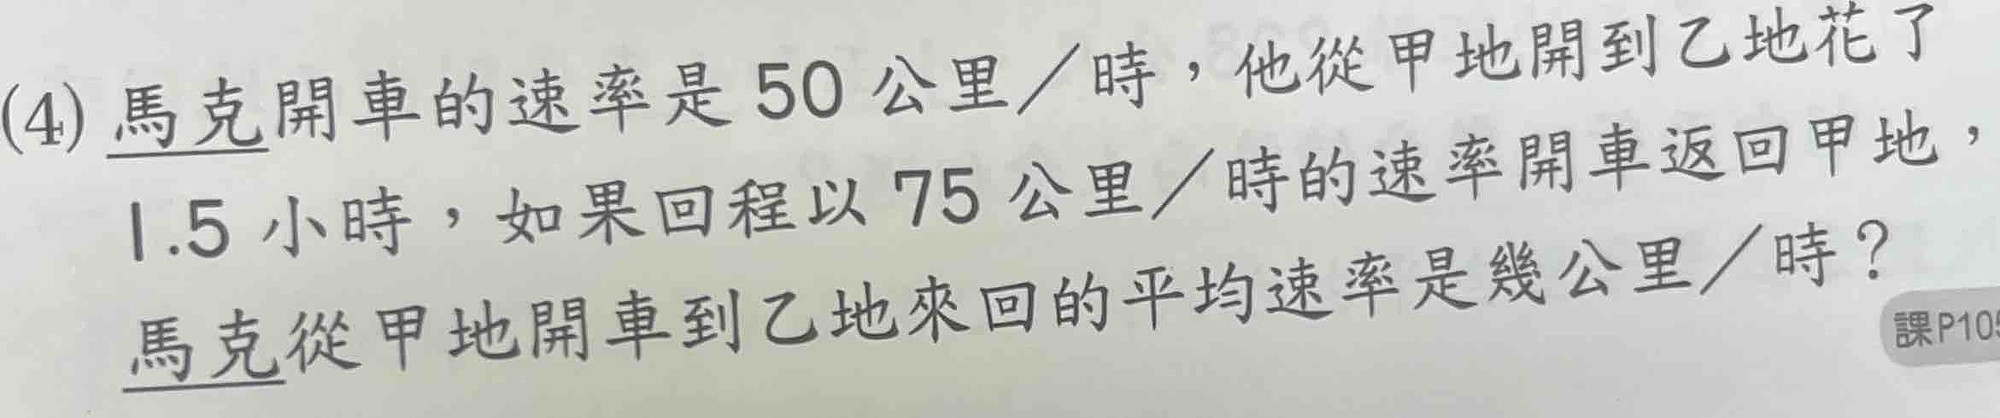 (4) 馬克開車的速率是 50 公里／時，他從甲地開到乙地花了
1.5 小時，如果回程以 75 公里／時的速率開車返回甲地，
馬克從甲地開車到乙地來回的平均速率是幾公里／時？
課P105